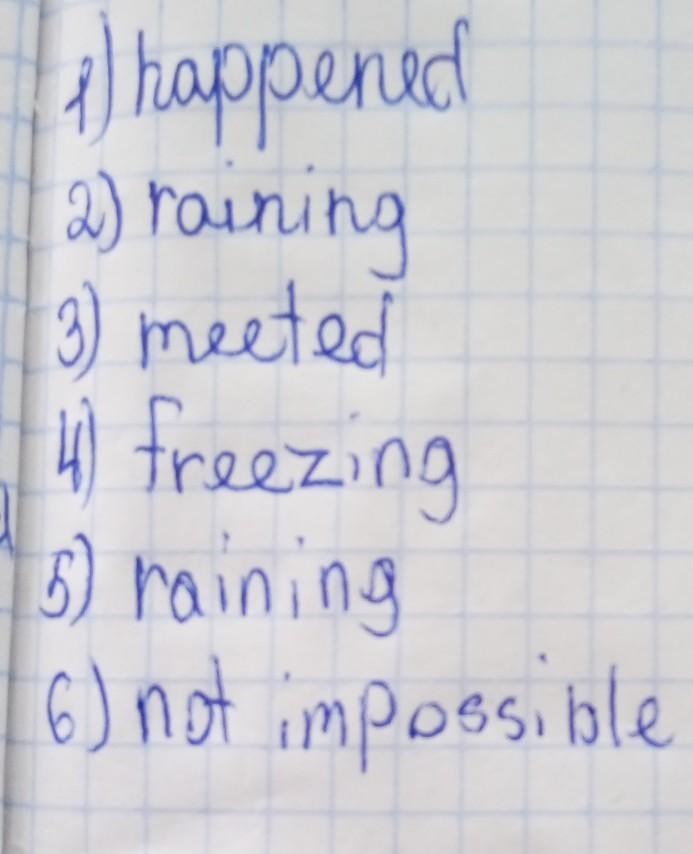 1) happened
2) raining
3) meeted
4) freezing
5) raining
6) not impossible